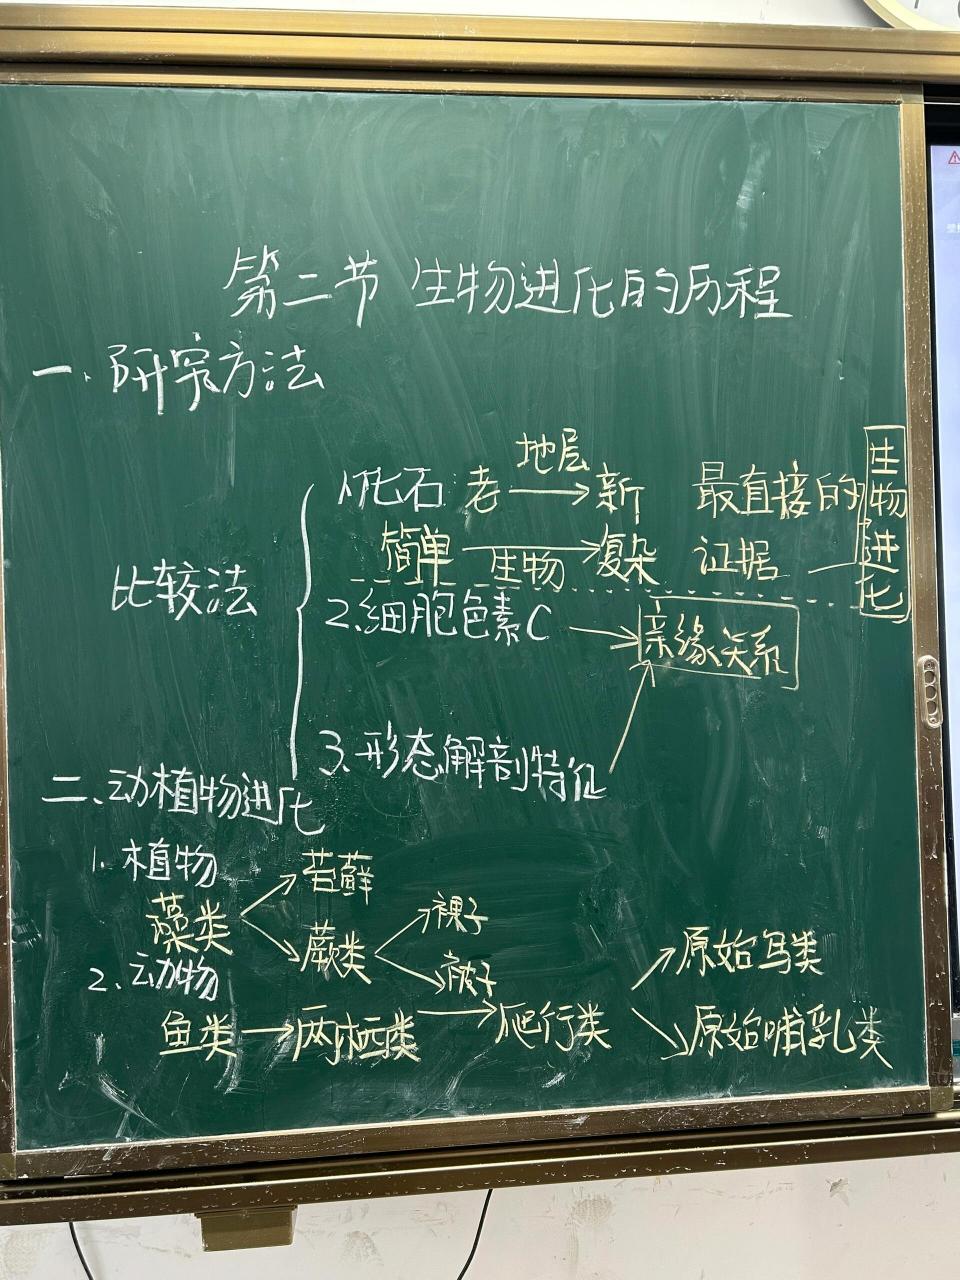 第二节 生物进化的历程
一、研究方法
比较法
1.化石: 老 地层→ 新 最直接的
简单 生物→ 复杂 证据
生物进化
2.细胞色素C → 亲缘关系
3.形态解剖特征
二、动植物进化
1.植物
藻类 苔藓
蕨类 裸子
被子
2.动物
鱼类→两栖类→爬行类 原始鸟类
原始哺乳类